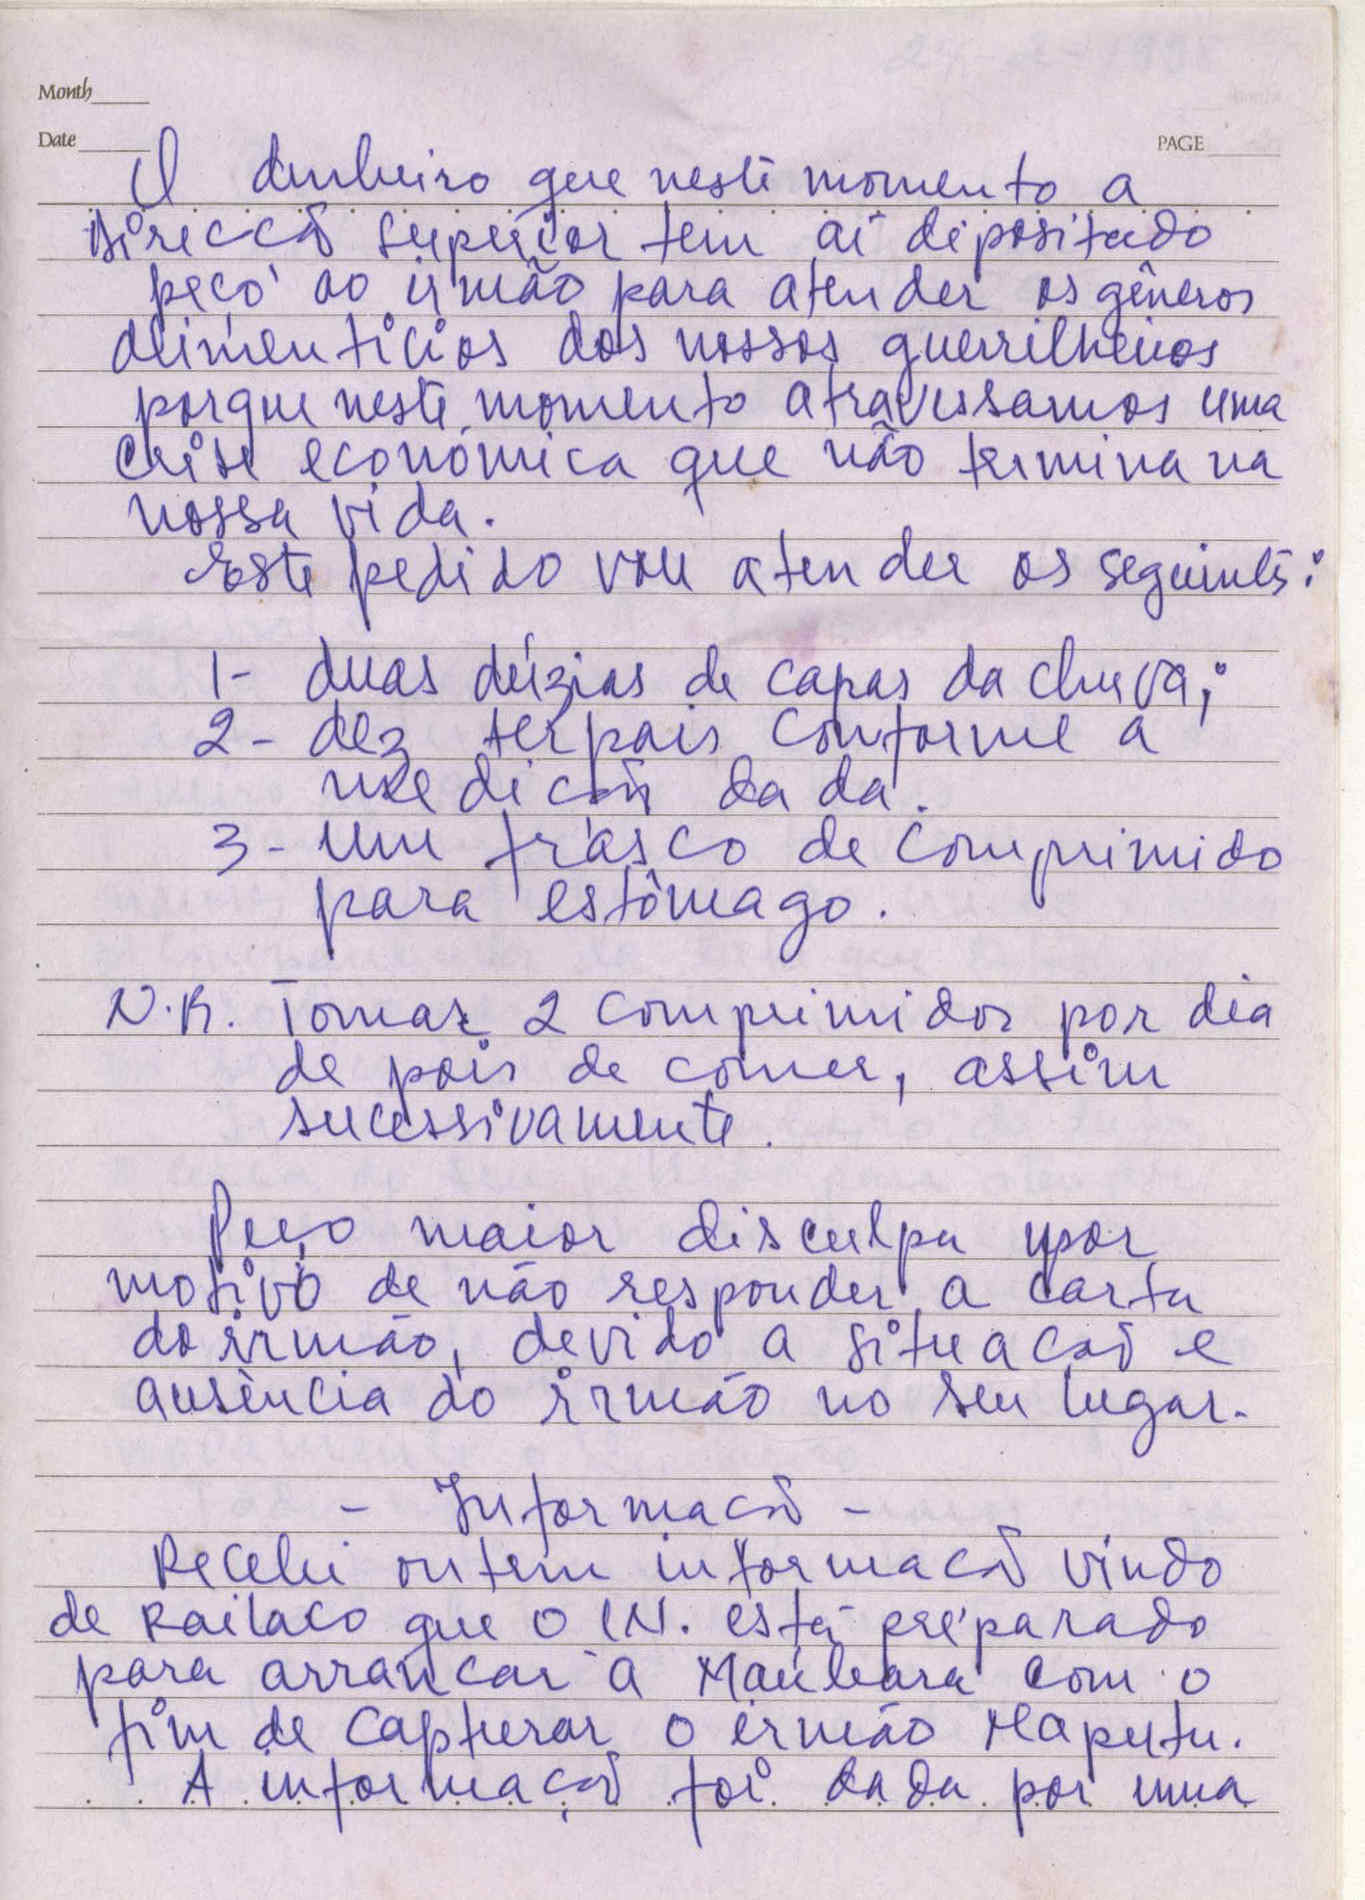 Month
Date
PAGE
O dinheiro que neste momento a
Direccão Superior tem aí depositado
peço ao irmão para atender os gêneros
alimentícios dos nossos guerrilheiros
porque neste momento atravessamos uma
crise económica que não termina na
nossa vida.
Este pedido vou atender os seguintes:
1- duas dúzias de capas da chuva;
2- dez terpais conforme a
medicão dada.
3- um frasco de comprimido
para estômago.
N.B. Tomar 2 comprimidos por dia
de pois de comer, assim
sucessivamente.
Peço maior disculpa por
motivo de não responder a carta
do irmão, devido a situacão e
ausência do irmão no seu lugar.
- Informacão -
Recebi ontem informacão vindo
de Railaco que o IN. está preparado
para arrancar a Maubara com o
fim de capturar o irmão Maputu.
A informação foi dada por uma